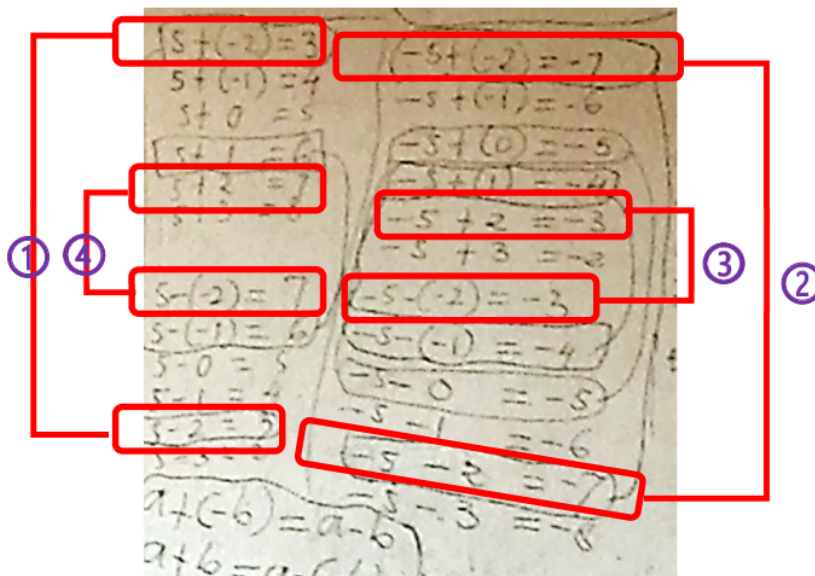 ①
④
5+(-2)=3
5+(-1)=4
5+0=5
5+1=6
5+2=7
5+3=8
5-(-2)=7
5-(-1)=6
5-0=5
5-2=3
a+(-b)=a-b
-5+(-2)=-7
-5+(-1)=-6
-5+(0)=-5
-5+(1)=-4
-5+2=-3
-5+3=-2
-5-(-2)=-3
-5-(-1)=-4
-5-0=-5
-5-1=-6
-5-2=-7
-5-3=-8
③
②